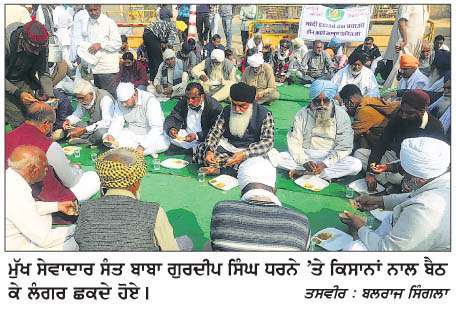 ਮੁੱਖ ਸੇਵਾਦਾਰ ਸੰਤ ਬਾਬਾ ਗੁਰਦੀਪ ਸਿੰਘ ਧਰਨੇ 'ਤੇ ਕਿਸਾਨਾਂ ਨਾਲ ਬੈਠ
ਕੇ ਲੰਗਰ ਛਕਦੇ ਹੋਏ।
ਤਸਵੀਰ : ਬਲਰਾਜ ਸਿੰਗਲਾ